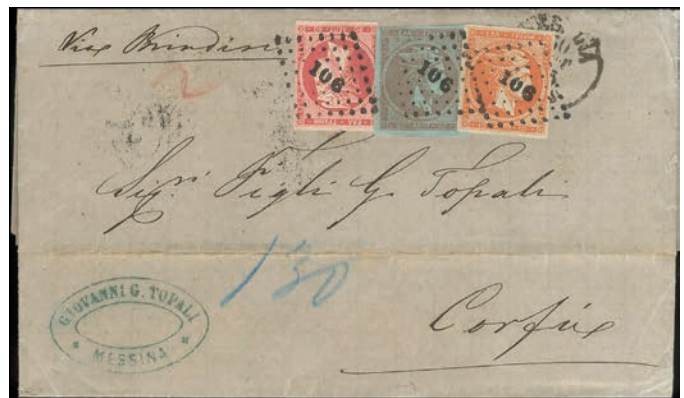 Via Brindisi
2
106
106
106
Sig.ri Figli G. Topali
130
GIOVANNI G. TOPALI
MESSINA
Corfù